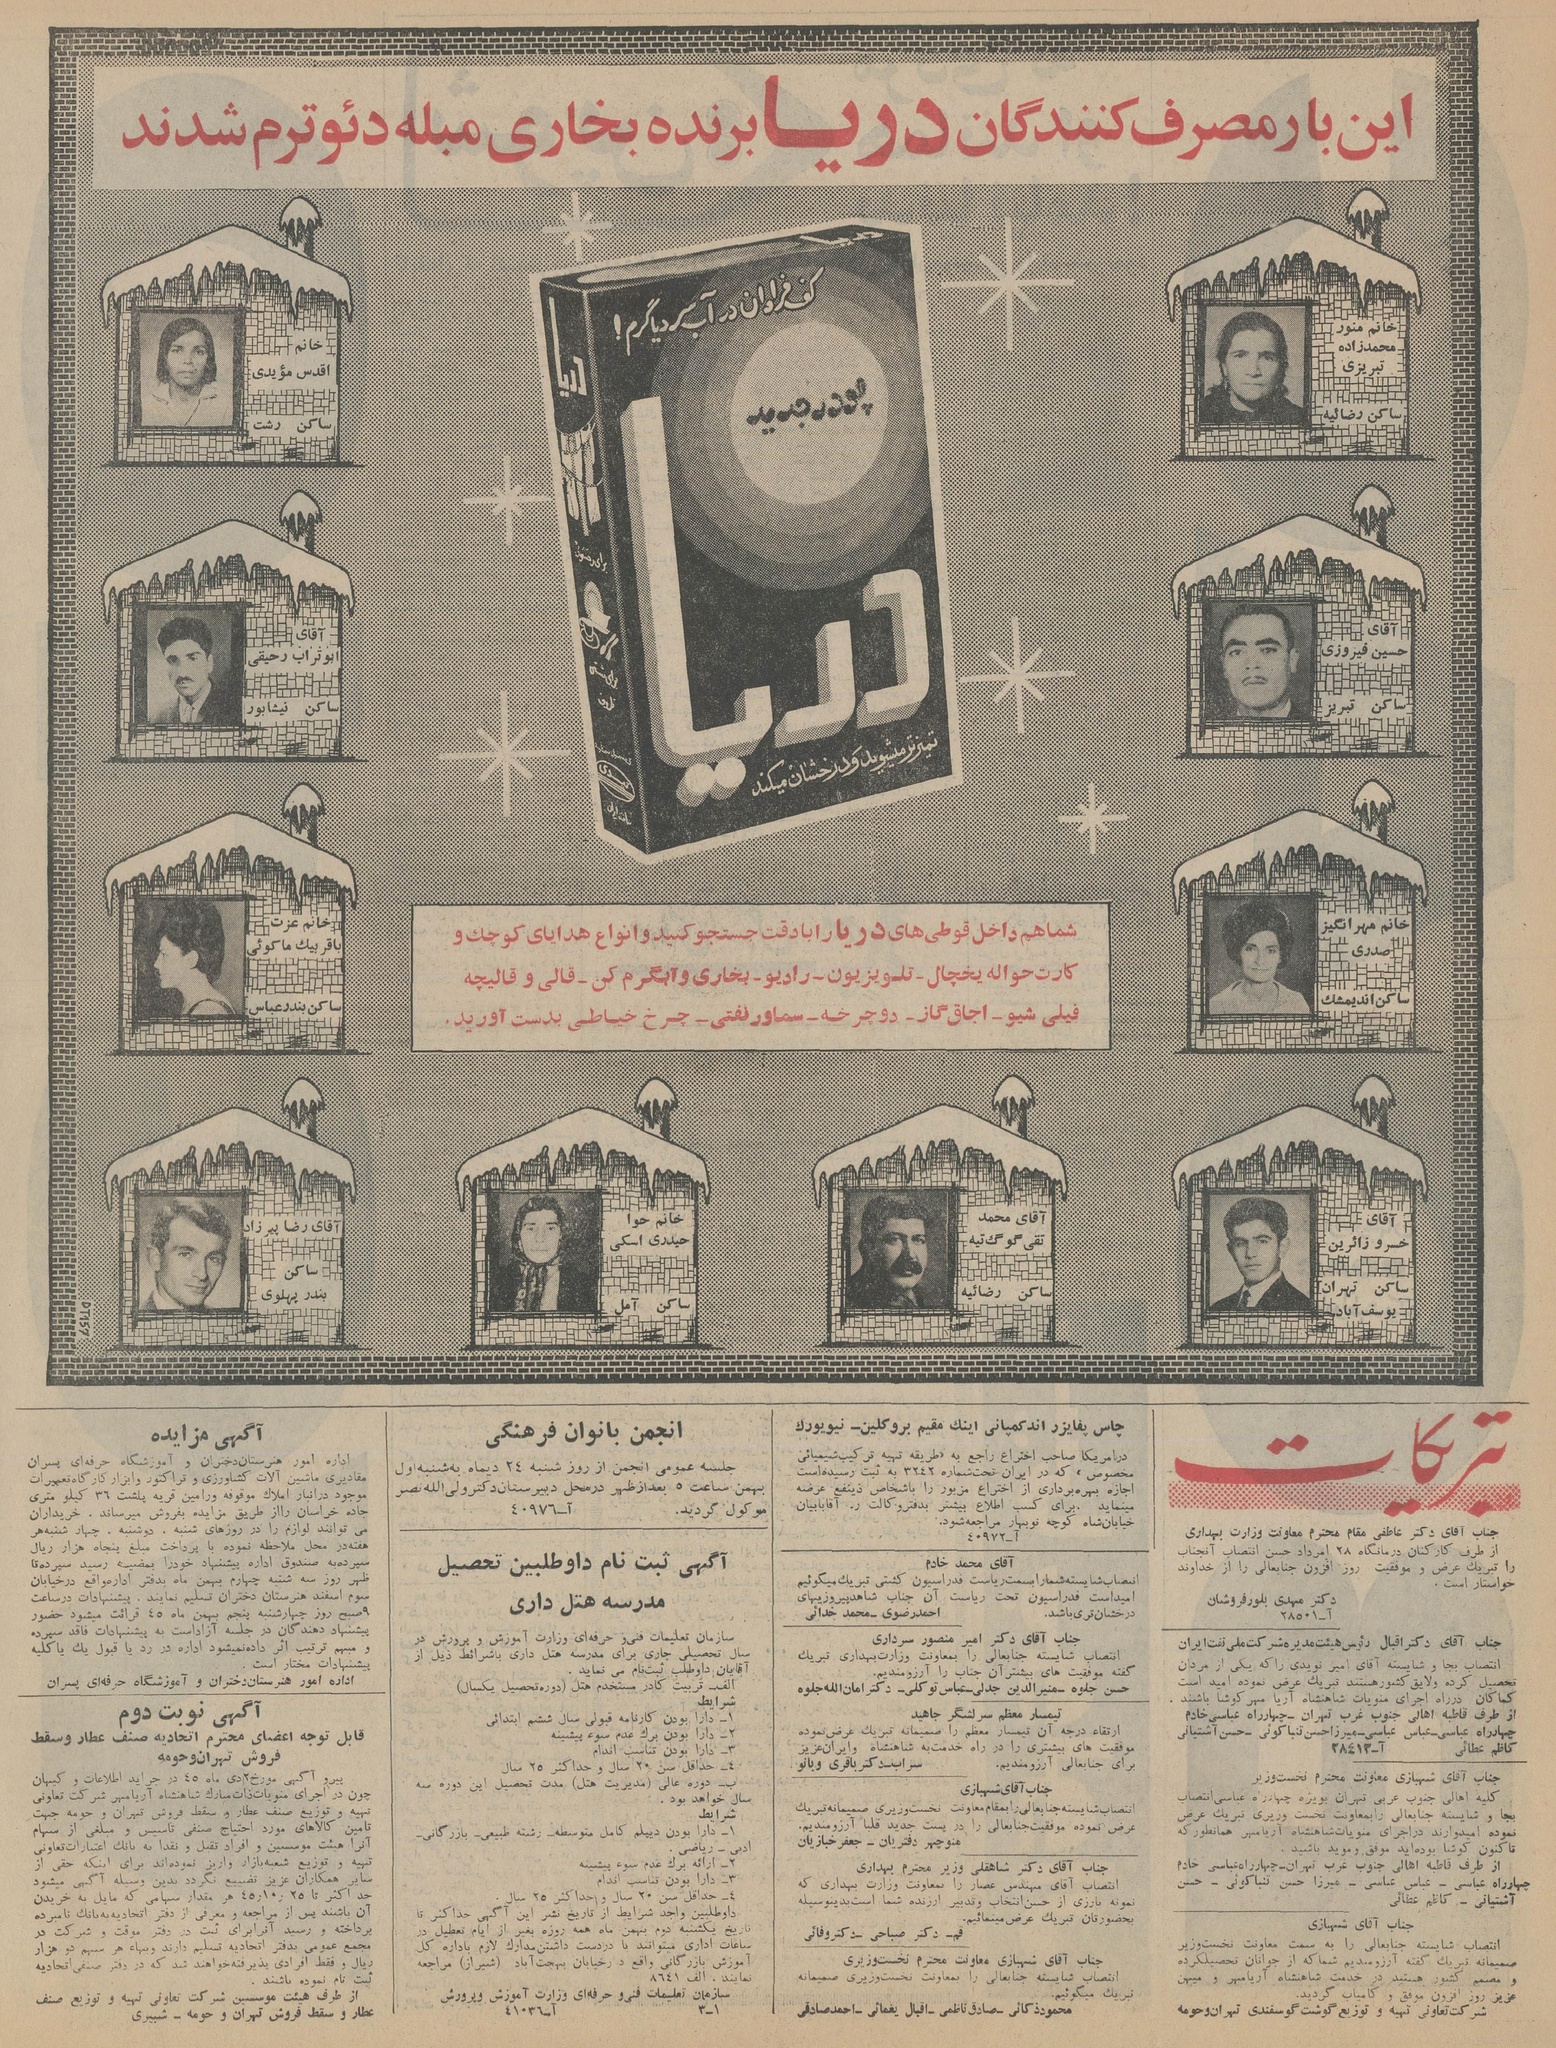 این بار مصرف‌کنندگان دریا برنده بخاری مبله دئوترم شدند
خانم منور
محمدزاده
تبریزی
ساکن رضائیه
خانم
اقدس مؤیدی
ساکن رشت
دریا
کف فراوان در آب سرد یا گرم!
پودر جدید
دریا
تمیزتر میشوید و درخشان میکند
دریا
آقای
حسین فیروزی
ساکن تبریز
آقای
ابوتراب رحیقی
ساکن نیشابور
خانم مهرانگیز
صدری
ساکن اندیمشک
خانم عزت
باقربیک ماکوئی
ساکن بندرعباس
شما هم داخل قوطی‌های دریا را با دقت جستجو کنید و انواع هدایای کوچک و
کارت حواله یخچال ـ تلویزیون ـ رادیو ـ بخاری و آبگرم کن ـ قالی و قالیچه
فیلی شیو ـ اجاق گاز ـ دوچرخه ـ سماور نفتی ـ چرخ خیاطی بدست آورید.
آقای
خسرو زائرین
ساکن تهران
یوسف‌آباد
آقای محمد
تقی گوگ‌تپه
ساکن رضائیه
خانم حوا
حیدری اسکی
ساکن آمل
آقای رضا پیرزاد
ساکن
بندر پهلوی
DT157
تبریکات
جناب آقای دکتر عاطفی مقام محترم معاونت وزارت بهداری
از طرف کارکنان درمانگاه ۲۸ امرداد حسن انتصاب آنجناب
را تبریک عرض و موفقیت روز افزون جنابعالی را از خداوند
خواستار است .
دکتر مهدی بلورفروشان
آ-۲۸۵۰۱
جناب آقای دکتر اقبال رئیس هیئت مدیره شرکت ملی نفت ایران
انتصاب بجا و شایسته آقای امیر نویدی را که یکی از مردان
تحصیل کرده ولایق کشورهستند تبریک عرض نموده امید است
کماکان درراه اجرای منویات شاهنشاه آریا مهر کوشا باشند .
از طرف قاطبه اهالی جنوب غرب تهران ـ چهارراه عباسی خادم
چهارراه عباسی ـ عباس عباسی ـ میرزا حسن تنباکوئی ـ حسن آشتیانی
کاظم عطائی آ-۲۸۴۱۳
جناب آقای شهبازی معاونت محترم نخست‌وزیر
کلیه اهالی جنوب غربی تهران بویژه چهارراه عباسی انتصاب
بجا و شایسته جنابعالی را بمعاونت نخست وزیری تبریک عرض
نموده امیدوارند دراجرای منویات شاهنشاه آریامهر همانطور که
تاکنون کوشا بوده‌اید موفق و موید باشید .
از طرف قاطبه اهالی جنوب غرب تهران ـ چهارراه عباسی خادم
چهارراه عباسی ـ عباس عباسی ـ میرزا حسن تنباکوئی ـ حسن
آشتیانی ـ کاظم عطائی
جناب آقای شهبازی
انتصاب شایسته جنابعالی را به سمت معاونت نخست‌وزیر
صمیمانه تبریک گفته آرزومندیم شما که از جوانان تحصیلکرده
و مصمم کشور هستید در خدمت شاهنشاه آریامهر و میهن
عزیز روز افزون موفق و کامیاب گردید.
شرکت تعاونی تهیه و توزیع گوشت گوسفندی تهران وحومه
چاس پفایزر اند کمپانی اینک مقیم بروکلین ـ نیویورک
درامریکا صاحب اختراع راجع به «طریقه تهیه ترکیب شیمیائی
مخصوص» که در ایران تحت شماره ۳۲۴۲ به ثبت رسیده است
اجازه بهره‌برداری از اختراع مزبور را باشخاص ذینفع عرضه
مینماید . برای کسب اطلاع بیشتر بدفتر وکالت ر. آقابابیان
خیابان شاه کوچه نوبهار مراجعه شود.
آ-۴۰۹۷۲
آقای محمد خادم
انتصاب شایسته شما را بسمت ریاست فدراسیون کشتی تبریک میگوئیم
امیداست فدراسیون تحت ریاست آن جناب شاهد پیروزیهای
درخشان تری باشد. احمد رضوی ـ محمد خدائی
جناب آقای دکتر امیر منصور سرداری
انتصاب شایسته جنابعالی را بمعاونت وزارت بهداری تبریک
گفته موفقیت های بیشتر آن جناب را آرزومندیم.
حسن جلوه ـ منیرالدین جدلی ـ عباس توکلی ـ دکتر امان‌الله جلوه
تیمسار معظم سرلشگر جاهد
ارتقاء درجه آن تیمسار معظم را صمیمانه تبریک عرض نموده
موفقیت های بیشتری را در راه خدمت به شاهنشاه وایران عزیز
برای جنابعالی آرزومندیم. سراب ـ دکتر باقری و بانو
جناب آقای شهبازی
انتصاب شایسته جنابعالی را بمقام معاونت نخست‌وزیری صمیمانه تبریک
عرض نموده موفقیت جنابعالی را در پست جدید قلباً آرزومندیم.
منوچهر دفتریان ـ جعفر خبازیان
جناب آقای دکتر شاهقلی وزیر محترم بهداری
انتصاب آقای مهندس عصار را بمعاونت وزارت بهداری که
نمونه بارزی از حسن انتخاب وتدبیر ارزنده شما است بدینوسیله
بحضورتان تبریک عرض مینمائیم.
قم ـ دکتر صباحی ـ دکتر وفائی
جناب آقای شهبازی معاونت محترم نخست‌وزیری
انتصاب شایسته جنابعالی را بمعاونت نخست‌وزیری صمیمانه
تبریک میگوئیم.
محمود ذکائی ـ صادق ناظمی ـ اقبال یغمائی ـ احمد صادقی
انجمن بانوان فرهنگی
جلسه عمومی انجمن از روز شنبه ۲۴ دیماه به شنبه اول
بهمن ساعت ۵ بعدازظهر درمحل دبیرستان دکتر ولی‌الله نصر
موکول گردید. آ-۴۰۹۷۶
آگهی ثبت نام داوطلبین تحصیل
مدرسه هتل داری
سازمان تعلیمات فنی و حرفه‌ای وزارت آموزش و پرورش در
سال تحصیلی جاری برای مدرسه هتل داری باشرائط ذیل از
آقایان داوطلب ثبت‌نام می نماید .
الف ـ تربیت کادر مستخدم هتل (دوره تحصیل یکسال)
شرایط
۱ـ دارا بودن کارنامه قبولی سال ششم ابتدائی
۲ـ دارا بودن برک عدم سوء پیشینه
۳ـ دارا بودن تناسب اندام
۴ـ حداقل سن ۲۰ سال و حداکثر ۲۵ سال
ب ـ دوره عالی (مدیریت هتل) مدت تحصیل این دوره سه
سال خواهد بود .
شرایط
۱ـ دارا بودن دیپلم کامل متوسطه ـ رشته طبیعی ـ بازرگانی ـ
ادبی ـ ریاضی .
۲ـ ارائه برک عدم سوء پیشینه
۳ـ دارا بودن تناسب اندام
۴ـ حداقل سن ۲۰ سال و حداکثر ۲۵ سال .
داوطلبین واجد شرایط از تاریخ نشر این آگهی حداکثر تا
تاریخ یکشنبه دوم بهمن ماه همه روزه بغیر از ایام تعطیل در
ساعات اداری میتوانند با دردست داشتن مدارک لازم باداره کل
آموزش بازرگانی واقع در خیابان بهجت‌آباد (شیراز) مراجعه
نمایند . الف ۸۶۴۱
سازمان تعلیمات فنی و حرفه‌ای وزارت آموزش و پرورش
۳-۱ آ-۴۱۰۳۶
آگهی مزایده
اداره امور هنرستان دختران و آموزشگاه حرفه‌ای پسران
مقادیری ماشین آلات کشاورزی و تراکتور وابزار کارگاه تعمیرات
موجود درانبار املاک موقوفه ورامین قریه پلشت ۳۶ کیلو متری
جاده خراسان رااز طریق مزایده بفروش میرساند . خریداران
می توانند لوازم را در روزهای شنبه . دوشنبه . چهار شنبه هر
هفته در محل ملاحظه نموده با پرداخت مبلغ پنجاه هزار ریال
سپرده به صندوق اداره پیشنهاد خودرا بضمیمه رسید سپرده تا
ظهر روز سه شنبه چهارم بهمن ماه بدفتر اداره واقع درخیابان
سوم اسفند هنرستان دختران تسلیم نمایند . پیشنهادات درساعت
۹ صبح روز چهارشنبه پنجم بهمن ماه ۴۵ قرائت میشود حضور
پیشنهاد دهندگان در جلسه آزاداست به پیشنهادات فاقد سپرده
و مبهم ترتیب اثر داده نمیشود اداره در رد یا قبول یک یا کلیه
پیشنهادات مختار است .
اداره امور هنرستان دختران و آموزشگاه حرفه‌ای پسران
آگهی نوبت دوم
قابل توجه اعضای محترم اتحادیه صنف عطار وسقط
فروش تهران وحومه
پیرو آگهی مورخ ۲ دی ماه ۴۵ در جراید اطلاعات و کیهان
چون در اجرای منویات ذات مبارک شاهنشاه آریامهر شرکت تعاونی
تهیه و توزیع صنف عطار و سقط فروش تهران و حومه جهت
تامین کالاهای مورد احتیاج صنفی تاسیس و مبلغی از سهام
آنرا هیئت موسسین و افراد تقبل و نقدا به بانک اعتبارات تعاونی
تهیه و توزیع شعبه بازار واریز نموده‌اند برای اینکه حقی از
سایر همکاران عزیز تضییع نگردد بدین وسیله آگهی میشود
حد اکثر تا ۴۵/۱۰/۲۵ هر مقدار سهامی که مایل به خریدن
آن باشند پس از مراجعه و معرفی از دفتر اتحادیه به بانک نامبرده
پرداخته و رسید آنرا برای ثبت در دفتر موقت و شرکت در
مجمع عمومی بدفتر اتحادیه تسلیم دارند وبهاء هر سهم دو هزار
ریال و فقط افرادی پذیرفته خواهند شد که در دفتر صنفی اتحادیه
ثبت نام نموده باشند .
از طرف هیئت موسسین شرکت تعاونی تهیه و توزیع صنف
عطار و سقط فروش تهران و حومه ـ شبیری